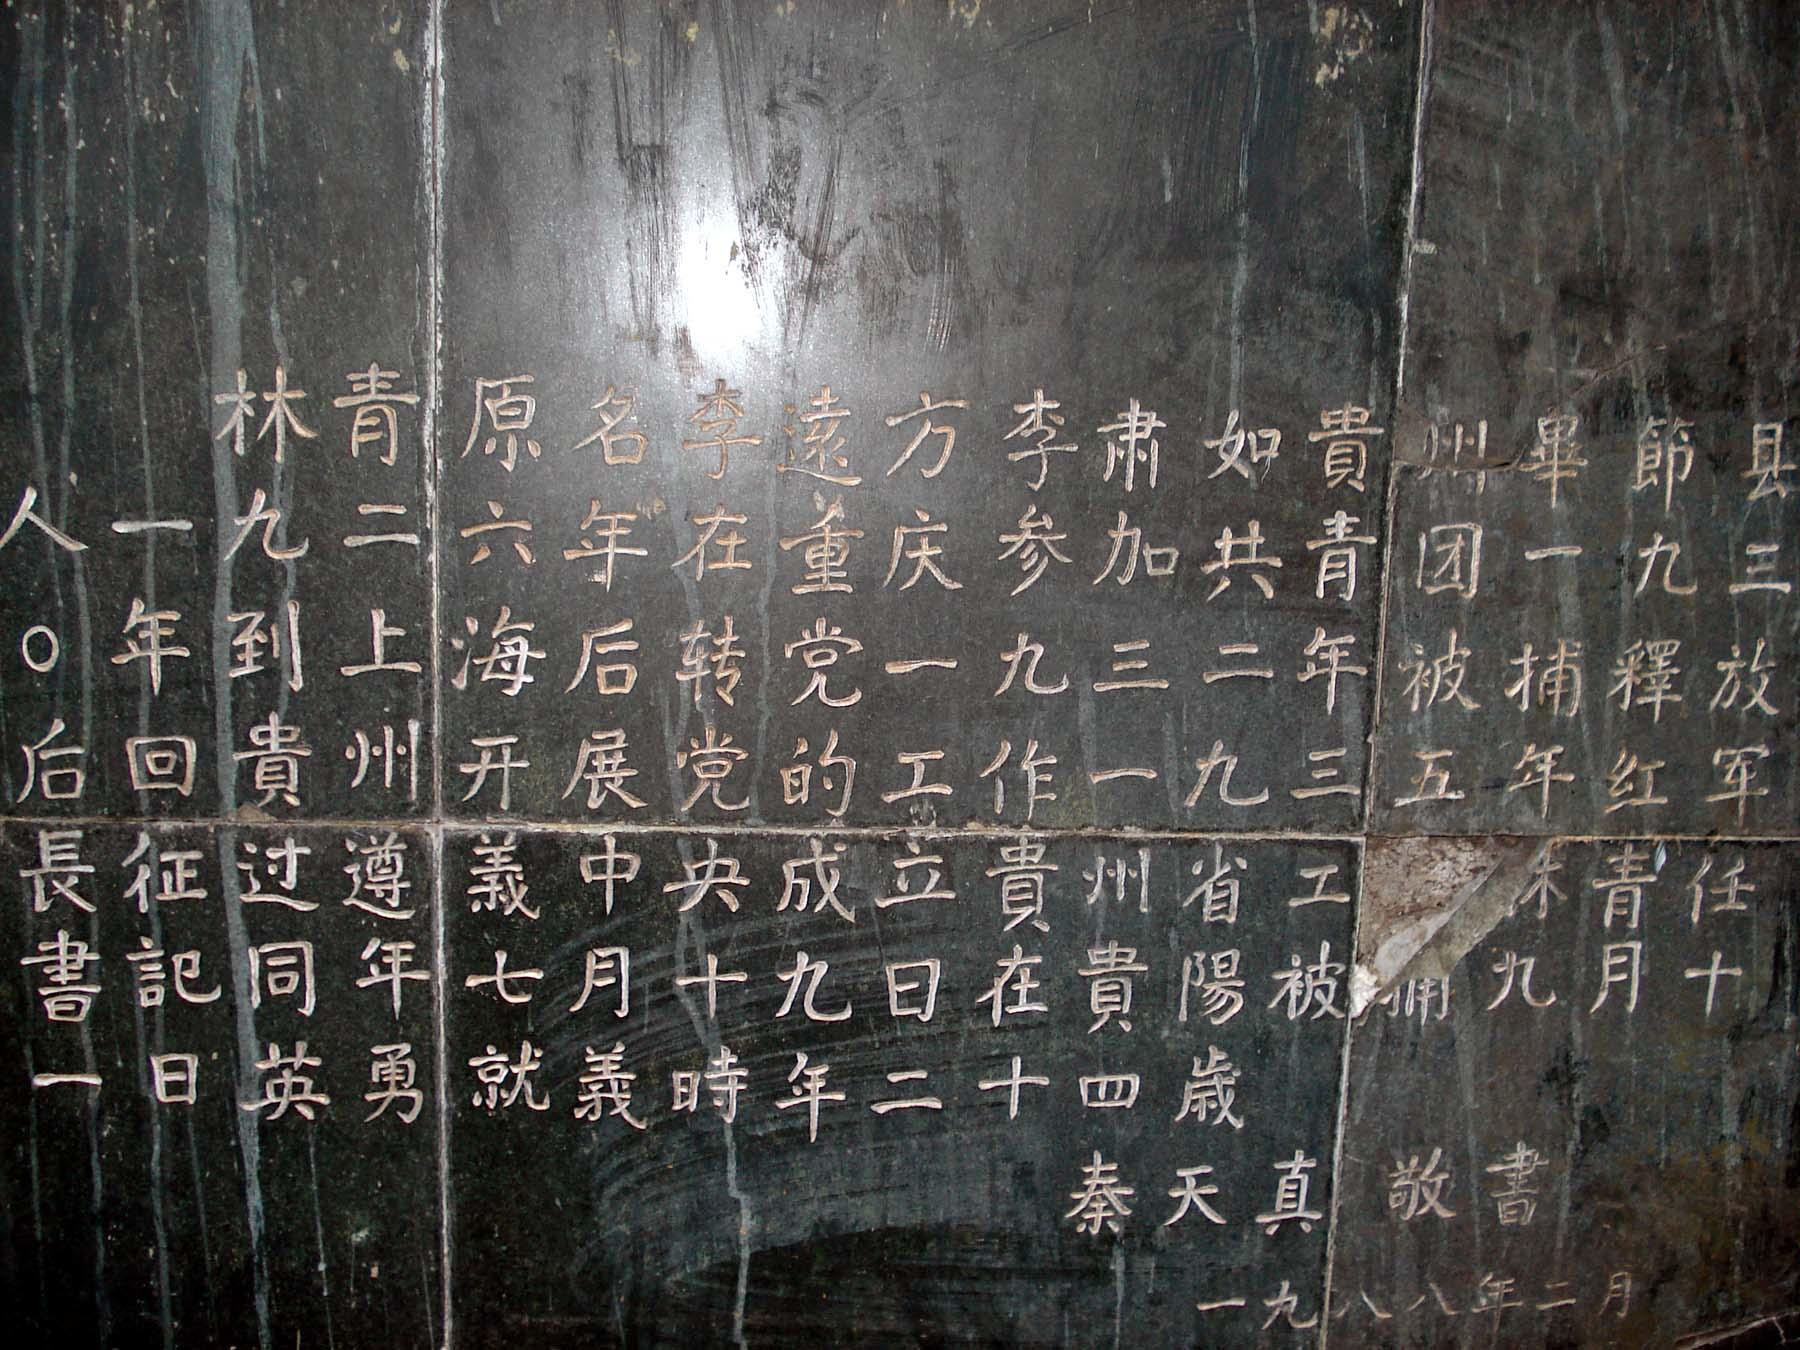 林青原名李遠方李肃如貴州畢節县
人一九二六年在重庆参加共青团一九三
〇年到上海后转党一九三二年被捕釋放
后回貴州开展党的工作一九三五年红军
長征过遵義中央成立貴州省工林青任
書記同年七月十九日在貴陽被捕九月十
一日英勇就義時年二十四歳
秦天真敬書
一九八八年二月